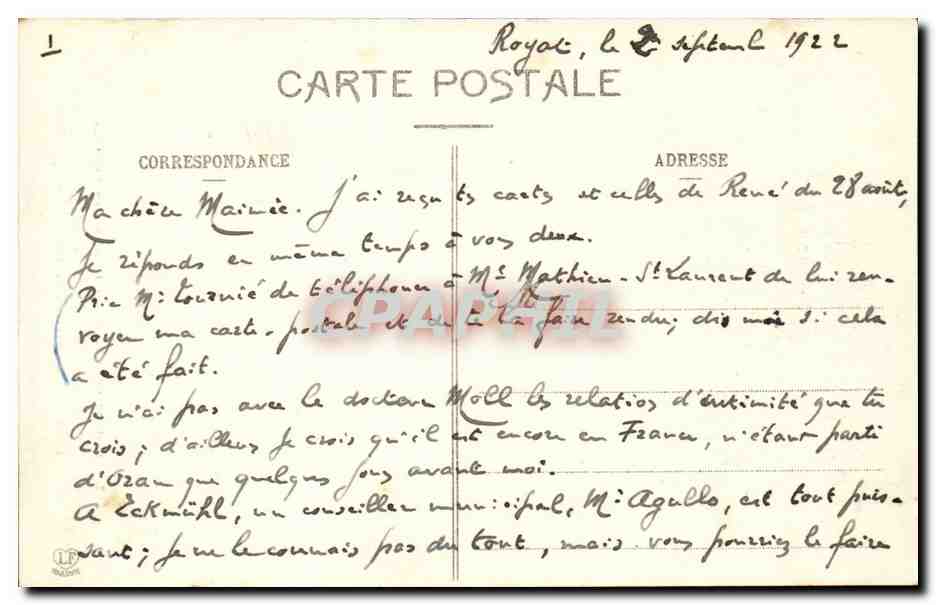 1
Royat, le 2 septembre 1922
CARTE POSTALE
CORRESPONDANCE
ADRESSE
Ma chère Maimée. J'ai reçu tes cartes et celles de René du 28 août,
Je réponds en même temps à vous deux.
Prie Mr Tournié de téléphoner à Mr Mathieu-St Laurent de lui ren-
voyer ma carte-postale et de te la faire rendre; dis moi si cela
a été fait.
Je n'ai pas avec le docteur Moll les relations d'intimité que tu
crois; d'ailleurs je crois qu'il est encore en France, n'étant parti
d'Oran que quelques jours avant moi.
A Eckmühl, un conseiller municipal, Mr Agullo, est tout puis-
sant; je ne le connais pas du tout, mais vous pourriez le faire
LF
CPAPHIL